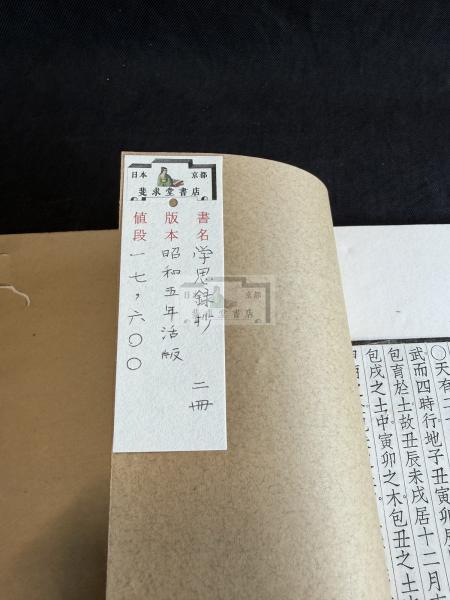 日本 京都
斐求堂書店
書名 学思録抄 二冊
版本 昭和五年活版
値段 一七,六〇〇
日本 京都
斐求堂書店
〇天有二
武而四時行地子丑寅卯
包育於土故丑辰未戌居十二月
包戌之土中寅卯之木包丑之土